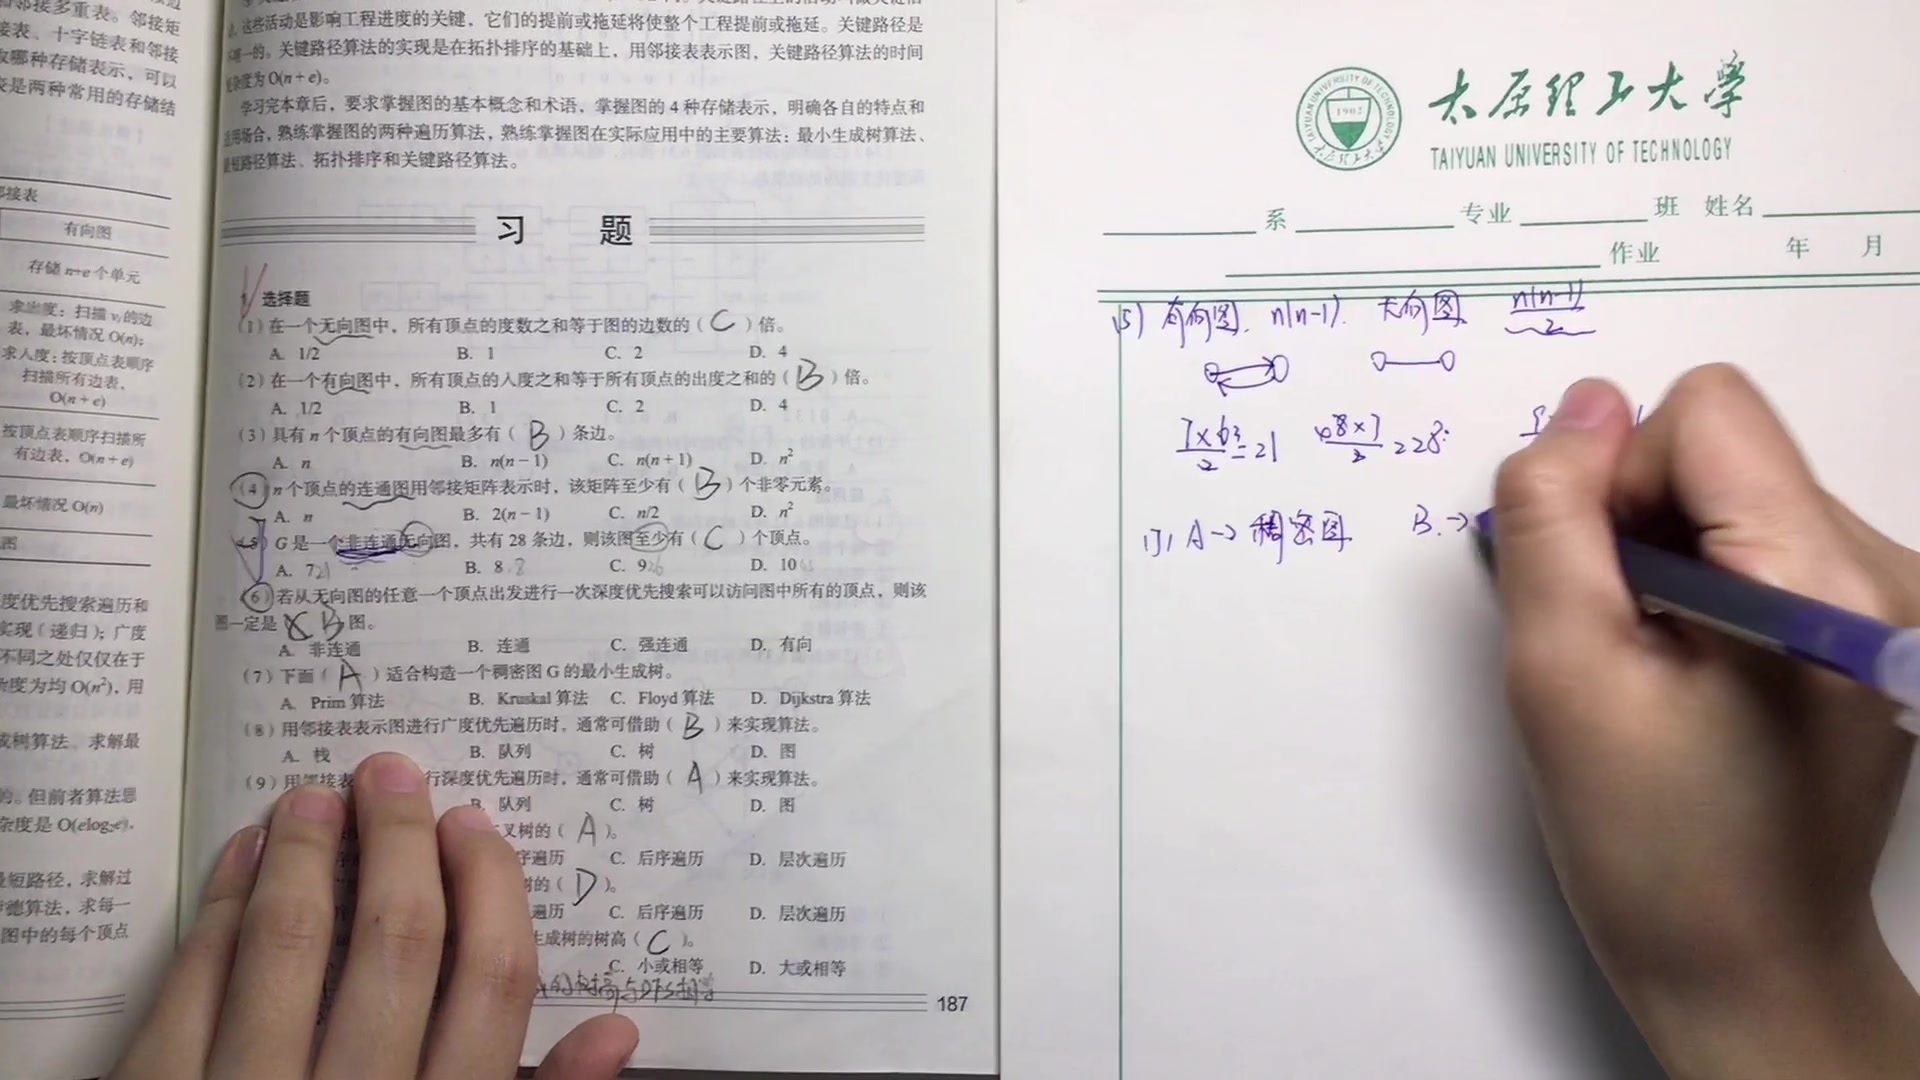 邻接多重表。邻接矩
接表、十字链表和邻接
取哪种存储表示，可以
表是两种常用的存储结
邻接表
有向图
存储 n+e 个单元
求出度：扫描 vᵢ 的边
表，最坏情况 O(n)；
求入度：按顶点表顺序
扫描所有边表，
O(n + e)
按顶点表顺序扫描所
有边表，O(n + e)
最坏情况 O(n)
度优先搜索遍历和
实现（递归）；广度
不同之处仅仅在于
杂度为均 O(n²)，用
成树算法、求解最
的。但前者算法思
杂度是 O(elog₂e)，
最短路径，求解过
德算法，求每一
图中的每个顶点
这些活动是影响工程进度的关键，它们的提前或拖延将使整个工程提前或拖延。关键路径是
不唯一的。关键路径算法的实现是在拓扑排序的基础上，用邻接表表示图，关键路径算法的时间
复杂度为 O(n + e)。
学习完本章后，要求掌握图的基本概念和术语，掌握图的 4 种存储表示，明确各自的特点和
适用场合，熟练掌握图的两种遍历算法，熟练掌握图在实际应用中的主要算法：最小生成树算法、
最短路径算法、拓扑排序和关键路径算法。
习 题
1 选择题
（1）在一个无向图中，所有顶点的度数之和等于图的边数的（ C ）倍。
A. 1/2 B. 1 C. 2 D. 4
（2）在一个有向图中，所有顶点的入度之和等于所有顶点的出度之和的（ B ）倍。
A. 1/2 B. 1 C. 2 D. 4
（3）具有 n 个顶点的有向图最多有（ B ）条边。
A. n B. n(n − 1) C. n(n + 1) D. n²
（4）n 个顶点的连通图用邻接矩阵表示时，该矩阵至少有（ B ）个非零元素。
A. n B. 2(n − 1) C. n/2 D. n²
（5）G 是一个非连通无向图，共有 28 条边，则该图至少有（ C ）个顶点。
A. 7 21 B. 8 28 C. 9 D. 10
（6）若从无向图的任意一个顶点出发进行一次深度优先搜索可以访问图中所有的顶点，则该
图一定是 B 图。
A. 非连通 B. 连通 C. 强连通 D. 有向
（7）下面（ A ）适合构造一个稠密图 G 的最小生成树。
A. Prim 算法 B. Kruskal 算法 C. Floyd 算法 D. Dijkstra 算法
（8）用邻接表表示图进行广度优先遍历时，通常可借助（ B ）来实现算法。
A. 栈 B. 队列 C. 树 D. 图
（9）用邻接表 行深度优先遍历时，通常可借助（ A ）来实现算法。
B. 队列 C. 树 D. 图
叉树的（ A ）。
序遍历 C. 后序遍历 D. 层次遍历
树的（ D ）。
遍历 C. 后序遍历 D. 层次遍历
生成树的树高（ C ）。
C. 小或相等 D. 大或相等
187
TAIYUAN UNIVERSITY OF TECHNOLOGY
1902
太原理工大学
太原理工大学
TAIYUAN UNIVERSITY OF TECHNOLOGY
系 专业 班 姓名
作业 年 月
(5) 有向图. n(n-1). 无向图 n(n-1)/2
7×6/2 = 21 8×7/2 = 28
(7) A → 稠密图 B. →